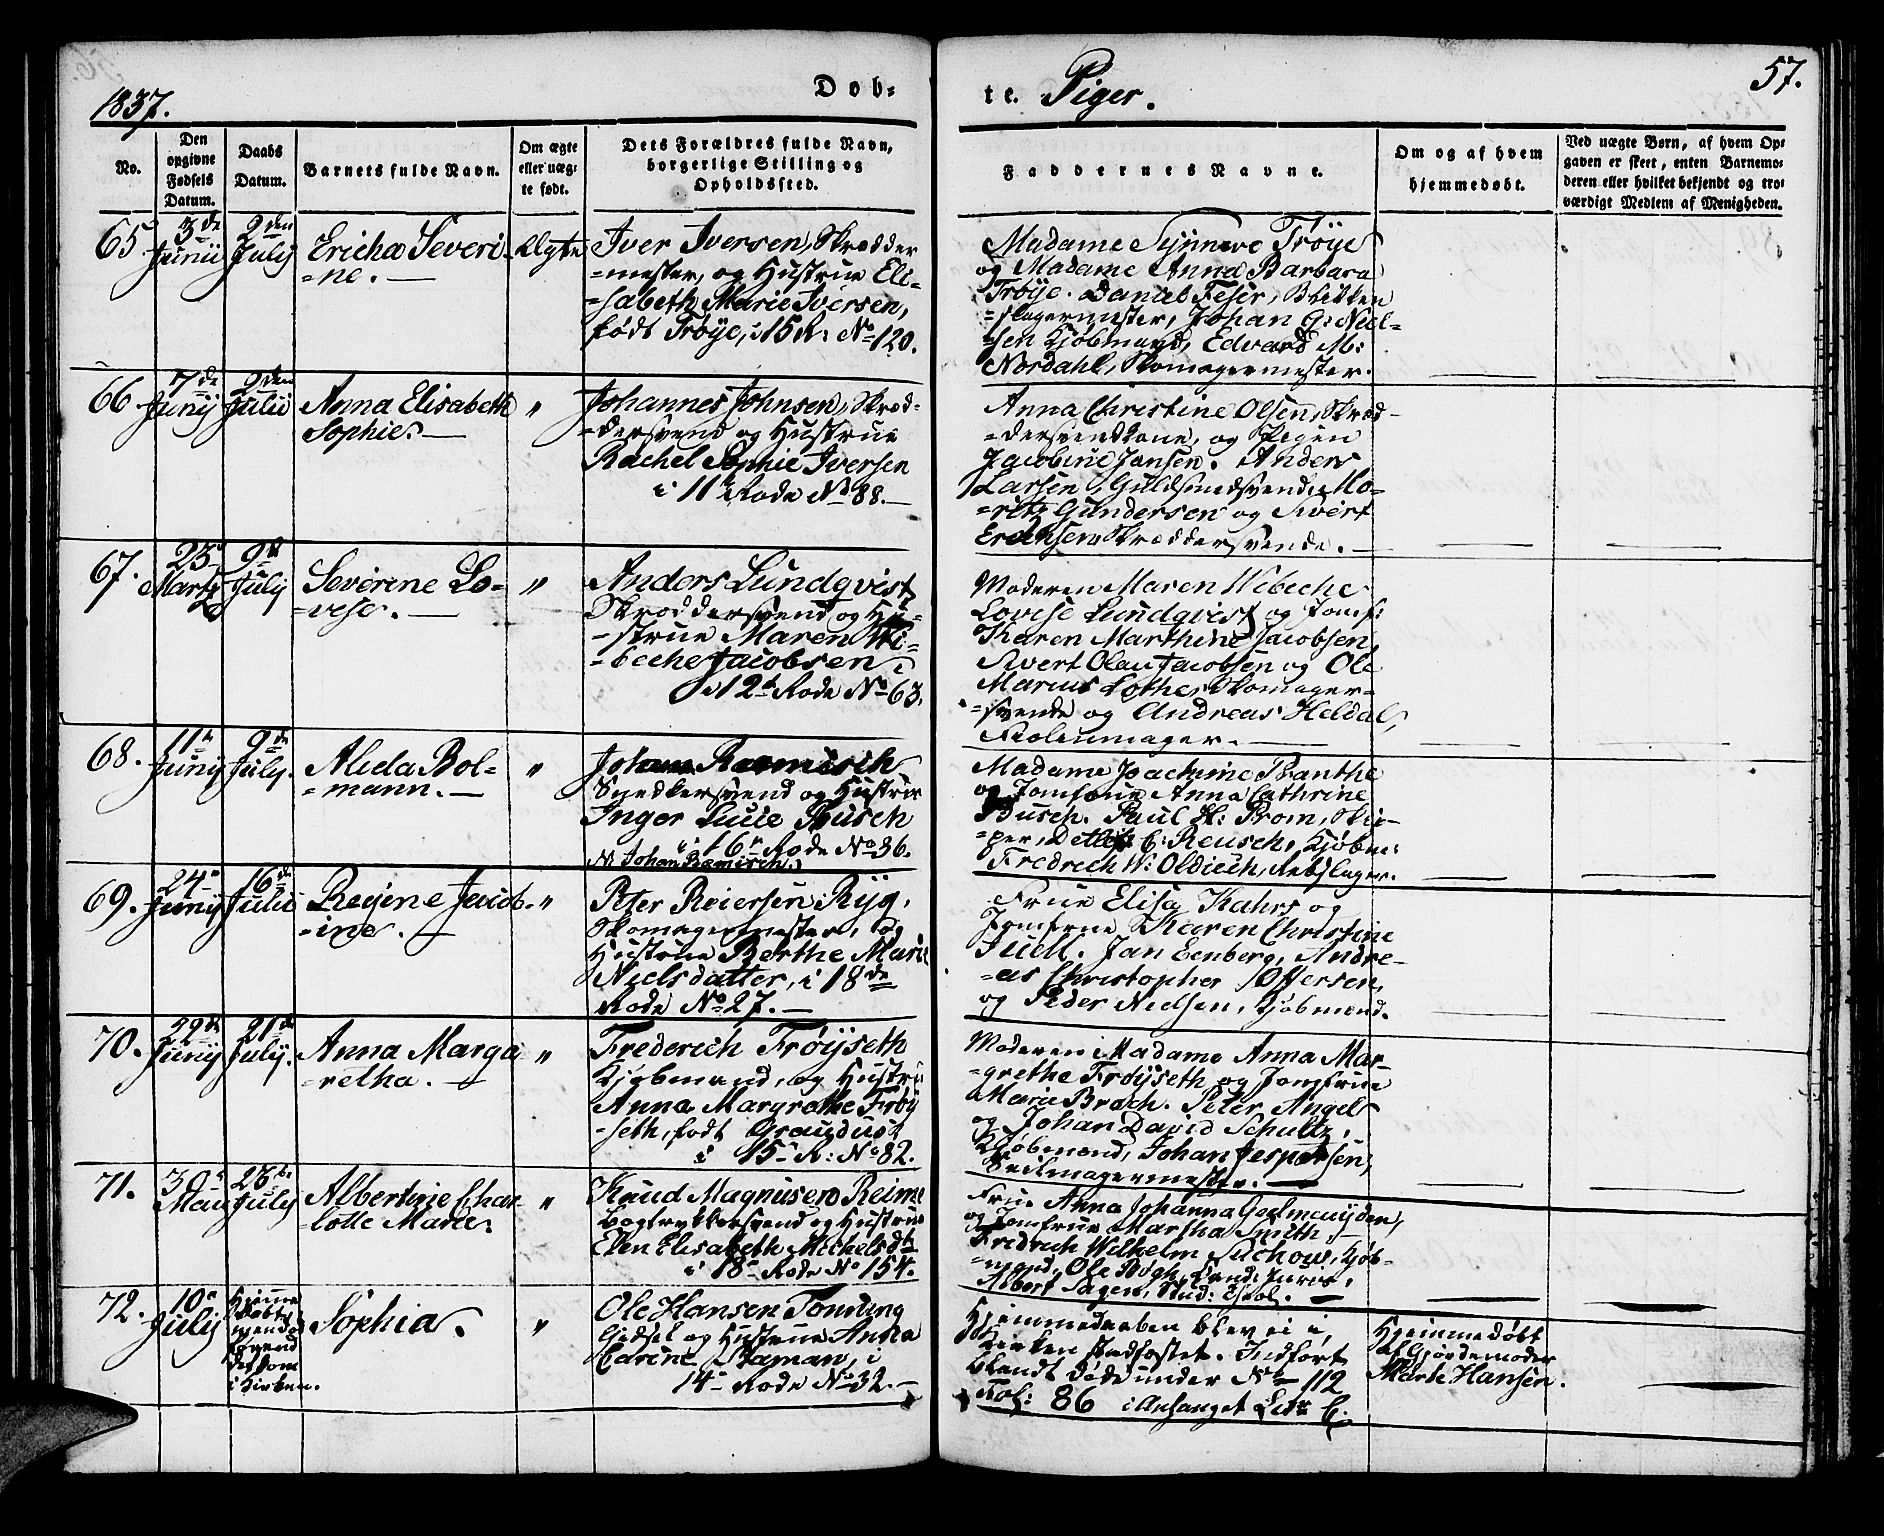 1837.
Døb-
te. Piger.
57.
No.
Den opgivne Fødsels Datum.
Daabs Datum.
Barnets fulde Navn.
Om ægte eller uæg- te født.
Dets Forældres fulde Navn, borgerlige Stilling og Opholdssted.
Faddernes Navne.
Om og af hvem hjemmedøbt.
Ved uægte Børn, af hvem Op- gaven er skeet, enten Barnemo- deren eller hvilket bekjendt og tro- værdigt Medlem af Menigheden.
65
3de Junii
2den July
Ericha Severi-
=ne.
Ægte
Iver Iversen, Skrædder
=mester, og Hustrue Eli-
=sabeth Marie Iversen,
født Trøye, i 15 R: No 120.
Madame Synneve Trøye
og Madame Anna Barbara
Trøye. Daniel Feser, Blikken
=slagermester, Johan G: Niel-
=sen Kjøbmand, Edvard M:
Nordahl, Skomagermester.
66
7de Juny
2den Julii
Anna Elisabeth
Sophie.
"
Johannes Johnsen, Skræd-
=dersvend og Hustrue
Rachel Sophie Iversen
i 11 Rode No 88.
Anna Christine Olsen, Skræd-
=dersvendkone, og Pigen
Jacobine Jansen. Anders
Larsen, Guldsmedsvend, Mo-
=ritz Gundersen og Sivert
Erichsen Skræddersvende.
67.
23 Marts
9d July
Severine Lo-
=vise.
"
Anders Lundqvist
Skræddersvend og Hu-
=strue Maren Wi-
=beche Jacobsen
i 12t Rode No 63.
Moderen Maren Wibeche
Lovise Lundqvist og Jomf:
Karen Marthine Jacobsen,
Sivert Olau Jacobsen og Ole
Marius Lothe, Skomager-
=svende og Andreas Heldal,
Stolemager.
68.
11te Juny
9de July.
Aleda Bol-
=mann.
"
Johan Ræmisch
Snedkersvend og Hustrue
Inger Lucie Busch
i 16 Rode No 36.
NB Johan Ræmisch.
Madame Joachime Branthe
og Jomfrue Anna Cathrine
Busch. Paul H: Prom, Skip-
=per, Detlef C: Reusch, Kjøbm:
Fredrich W: Oldiech, Rebslager.
69.
24 Juny
16de Julii
Regine Jacob-
=ine.
"
Peter Reiersen Ryg,
Skomagermester, og
Hustrue Berthe Marie
Nielsdatter, i 18de
Rode No 27.
Frue Elisa Kahrs og
Jomfrue Karen Christine
Juell. Jan Eenberg, Andre-
=as Christopher Offersen,
og Peder Nielsen, Kjøbmænd.
70.
22de Juny
21de July.
Anna Marga
=retha.
"
Frederich Frøyseth
Kjøbmand, og Hustrue
Anna Margrethe Frøy
=seth, født Graudust
i 15 R: No 82.
Moderen Madame Anna Mar-
=grethe Frøyseth og Jomfrue
Marie Broch. Peter Angel
og Johan David Schultz,
Kjøbmænd, Johan Jespersen,
Seilmagermester.
71.
30 Mai
23de July
Albertine Char-
=lotte Marie.
"
Knud Magnusen Reime
Bogtrykkersvend og Hustrue
Elen Elisabeth Michelsdt
i 18 Rode No 154.
Frue Anna Johanna Geelmeuyden,
og Jomfrue Martha Smith,
Fredrich Wilhelm Suchow, Kjøb-
=mand, Ole Bøgh, Cand: Juris,
Albert Sagen, Stud: Theol.
72.
10 July
Hjemme
døbt
i Kirken.
Sophia.
"
Ole Hansen Tønning
Gjedsel og Hustrue Anna
Carine Baman, i
14 Rode No 32.
Hjemmedaaben blev ei i
Kirken stadfæstet. Indført
blandt døde under No 112
Fol: 86 i Anhanget Litr C.
Hjemmedøbt
af Gjordemoder
Marte Hansen.